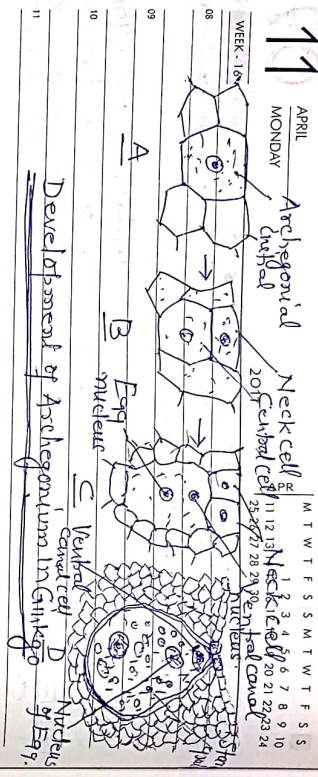 11
APRIL
MONDAY
WEEK - 16
2011
APR
M T W T F S S M T W T F S S
1 2 3 4 5 6 7 8 9 10
11 12 13 20 21 22 23 24
25 26 27 28 29 30
08
09
10
11
Archegonial
initial
Neck cell
Central cell
Neck cell
Ventral canal
nucleus
Egg
nucleus
A
B
C
D
Ventral
canal cell
Nucleus
of Egg.
Development of Archegonium in Ginkgo